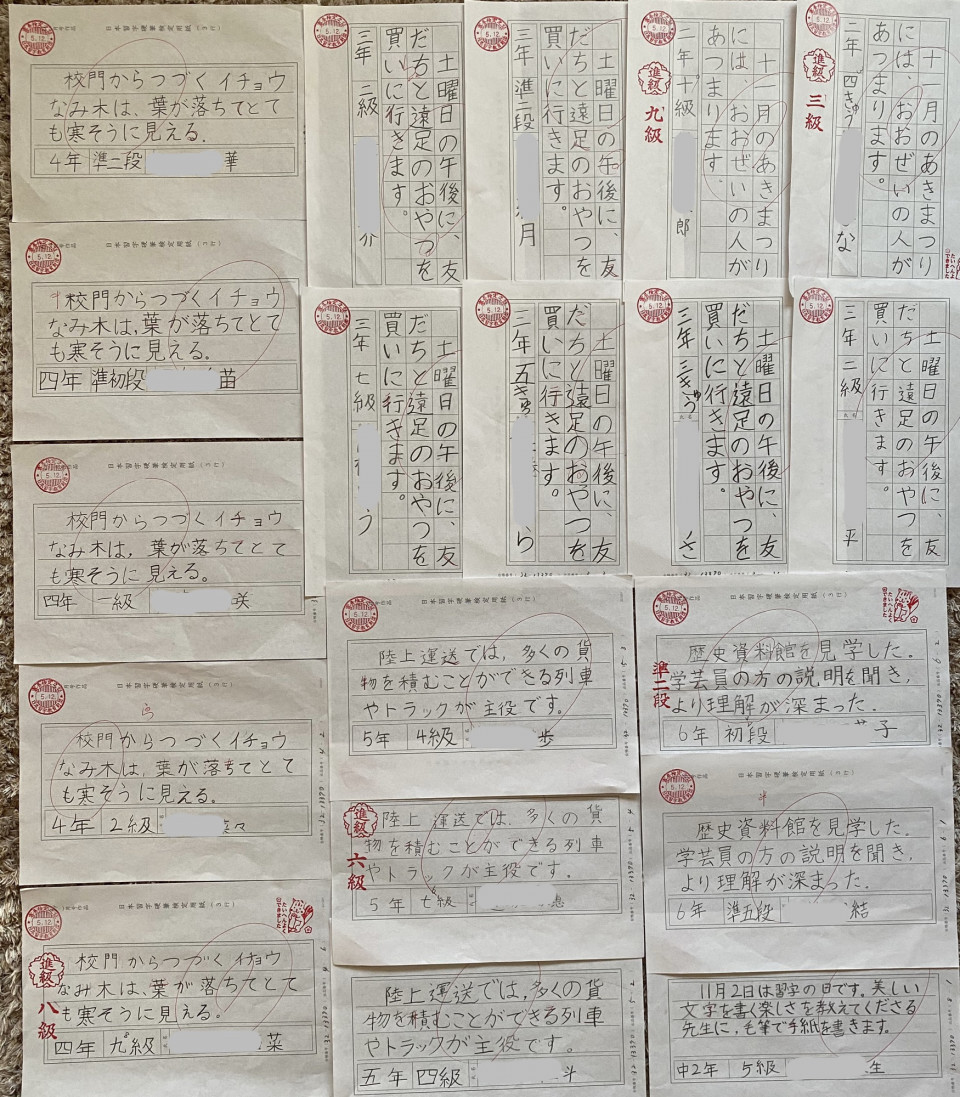 日本習字硬筆検定用紙(3行)
5.12.
校門からつづくイチョウ
なみ木は、葉が落ちてとて
も寒そうに見える。
4年 準二段 華
5.12.
土曜日の午後に、友
だちと遠足のおやつを
買いに行きます。
三年 二級 介
5.12.
土曜日の午後に、友
だちと遠足のおやつを
買いに行きます。
三年 準二段 月
5.12.
十一月のあきまつり
には、おおぜいの人が
あつまります。
二年 十級 郎
進級 九級
5.12.
十一月のあきまつり
には、おおぜいの人が
あつまります。
二年 四きゅう な
進級 三級
たいへんよくできました
日本習字硬筆検定用紙(3行)
5.12.
校門からつづくイチョウ
なみ木は、葉が落ちてとて
も寒そうに見える。
四年 準初段 苗
5.12.
土曜日の午後に、友
だちと遠足のおやつを
買いに行きます。
三年 七級 う
5.12.
土曜日の午後に、友
だちと遠足のおやつを
買いに行きます。
三年 五きゅう ら
5.12.
土曜日の午後に、友
だちと遠足のおやつを
買いに行きます。
三年 三きゅう き
5.12.
土曜日の午後に、友
だちと遠足のおやつを
買いに行きます。
三年 二級 平
日本習字硬筆検定用紙(3行)
5.12.
校門からつづくイチョウ
なみ木は、葉が落ちてとて
も寒そうに見える。
四年 一級 咲
日本習字硬筆検定用紙(3行)
5.12.
校門からつづくイチョウ
なみ木は、葉が落ちてとて
も寒そうに見える。
4年 2級 菜々
日本習字硬筆検定用紙(3行)
5.12.
たいへんよくできました
校門からつづくイチョウ
なみ木は、葉が落ちてとて
も寒そうに見える。
四年 九級 菜
進級 八級
日本習字硬筆検定用紙(3行)
5.12.
陸上運送では、多くの貨
物を積むことができる列車
やトラックが主役です。
5年 4級 歩
進級 六級
陸上運送では、多くの貨
物を積むことができる列車
やトラックが主役です。
5年 七級 恵
陸上運送では、多くの貨
物を積むことができる列車
やトラックが主役です。
五年 四級 斗
日本習字硬筆検定用紙(3行)
5.12.
たいへんよくできました
歴史資料館を見学した。
学芸員の方の説明を聞き、
より理解が深まった。
6年 初段 子
準二段
日本習字硬筆検定用紙(3行)
5.12.
歴史資料館を見学した。
学芸員の方の説明を聞き、
より理解が深まった。
6年 準五段 結
11月2日は習字の日です。美しい
文字を書く楽しさを教えてくださる
先生に、毛筆で手紙を書きます。
中2年 5級 生